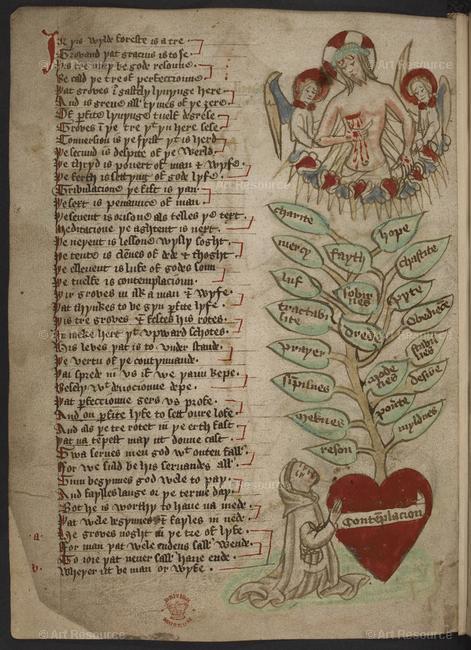 In þis wylde foreste is a tre
Growand þat gracius is to se
Þis tre may be gode resoune
Be cald þe tre of perfeccioune
Þat growes in gastly lyuynge here
And is grene all tymes of þe zere
Of perfite lyuynge twelf degrese
Growes in þe tre þt ȝu here sese
Conuersion is þe first þt is herd
Þe secund is despite of þe werld
Þe thryd is pouert of man & wyfe
Þe ferth is settyng of gode lyfe
Tribulacione þe fift is þan
Þe sext is penaunce of man
Þe seuent is orisone als telles þe text
Meditacione þe aghtent is next
Þe neȝent is lessone wysly soght
Þe tente is clenes of dede & thoght
Þe elleuent is luf of godes sonn
Þe twelft is contemplacioun
Þir growes in ilk a man & wyfe
Þat thynkes to be gyn perfite lyfe
Þis tre growes & festes his rotes
It meke hert þt vpward schotes
His leues þat is to vnder stande
Þe vertu of þe
Þat sprede in vs if we þaim kepe
Besely with deuocioune depe
Þat perfeccione gers vs profe
And on perfite lyfe to sett oure lofe
And als þe tre rotet in þe erth fast
Þat na tempest may it doune cast
Swa serues men god with outen fall
For we suld be his seruandes all
Sum begynnes god wele to pay
And fayles lange or þe terme day
Bot he is worthy to haue na mede
Þat wele begynnes & fayles in nede
He growes noght in þe tre of lyfe
For man þat wele endens sall wende
To ioye þat neuer sall haue ende
Wheþer it be man or wyfe
a
b
charite
hope
mercy
fayth
chastite
luf
sobirnes
pyte
tractabilite
drede
obedience
prayer
stabilnes
sympilnes
modenes
desire
meknes
pointe
myldnes
reson
Contemplacion
© Art Resource
© Art Resource
© Art Resource
© Art Resource